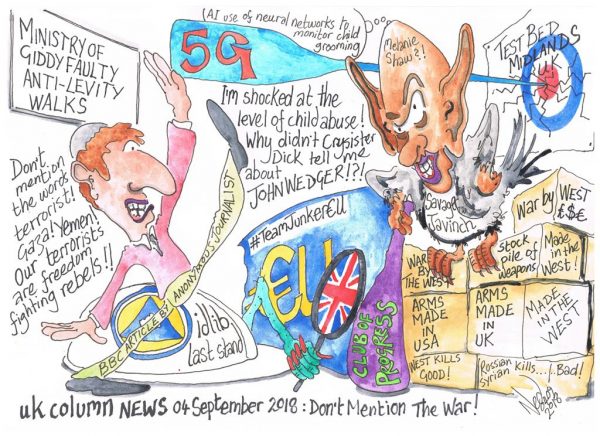 MINISTRY OF
GIDDY FAULTY
ANTI-LEVITY
WALKS
(AI use of neural networks to
monitor child
grooming
5G
Melanie
Shaw?!
TEST BED
MIDLANDS
UK
I'm shocked at the
level of child abuse!
Why didn't Crysister
Dick tell me
about
JOHN WEDGER!?!
Don't
mention
the words
terrorist!
Gaza! Yemen!
Our terrorists
are freedom
fighting rebels!!
BBC ARTICLE BY ANONYMOUS JOURNALIST
idlib
last stand
#TeamJunkerEU
€U
CLUB OF
PROGRESS
Savage
Javinch
War by WEST
£$€
WARE
BY
THE WEST
stock
pile of
weapons
Made
in the
West!
ARMS
MADE
IN
USA
ARMS
MADE
IN
UK
MADE
IN THE
WEST
WEST KILLS
GOOD!
Russian
Syrian kills....Bad!
2018
uk column NEWS 04 September 2018 : Don't Mention The War!